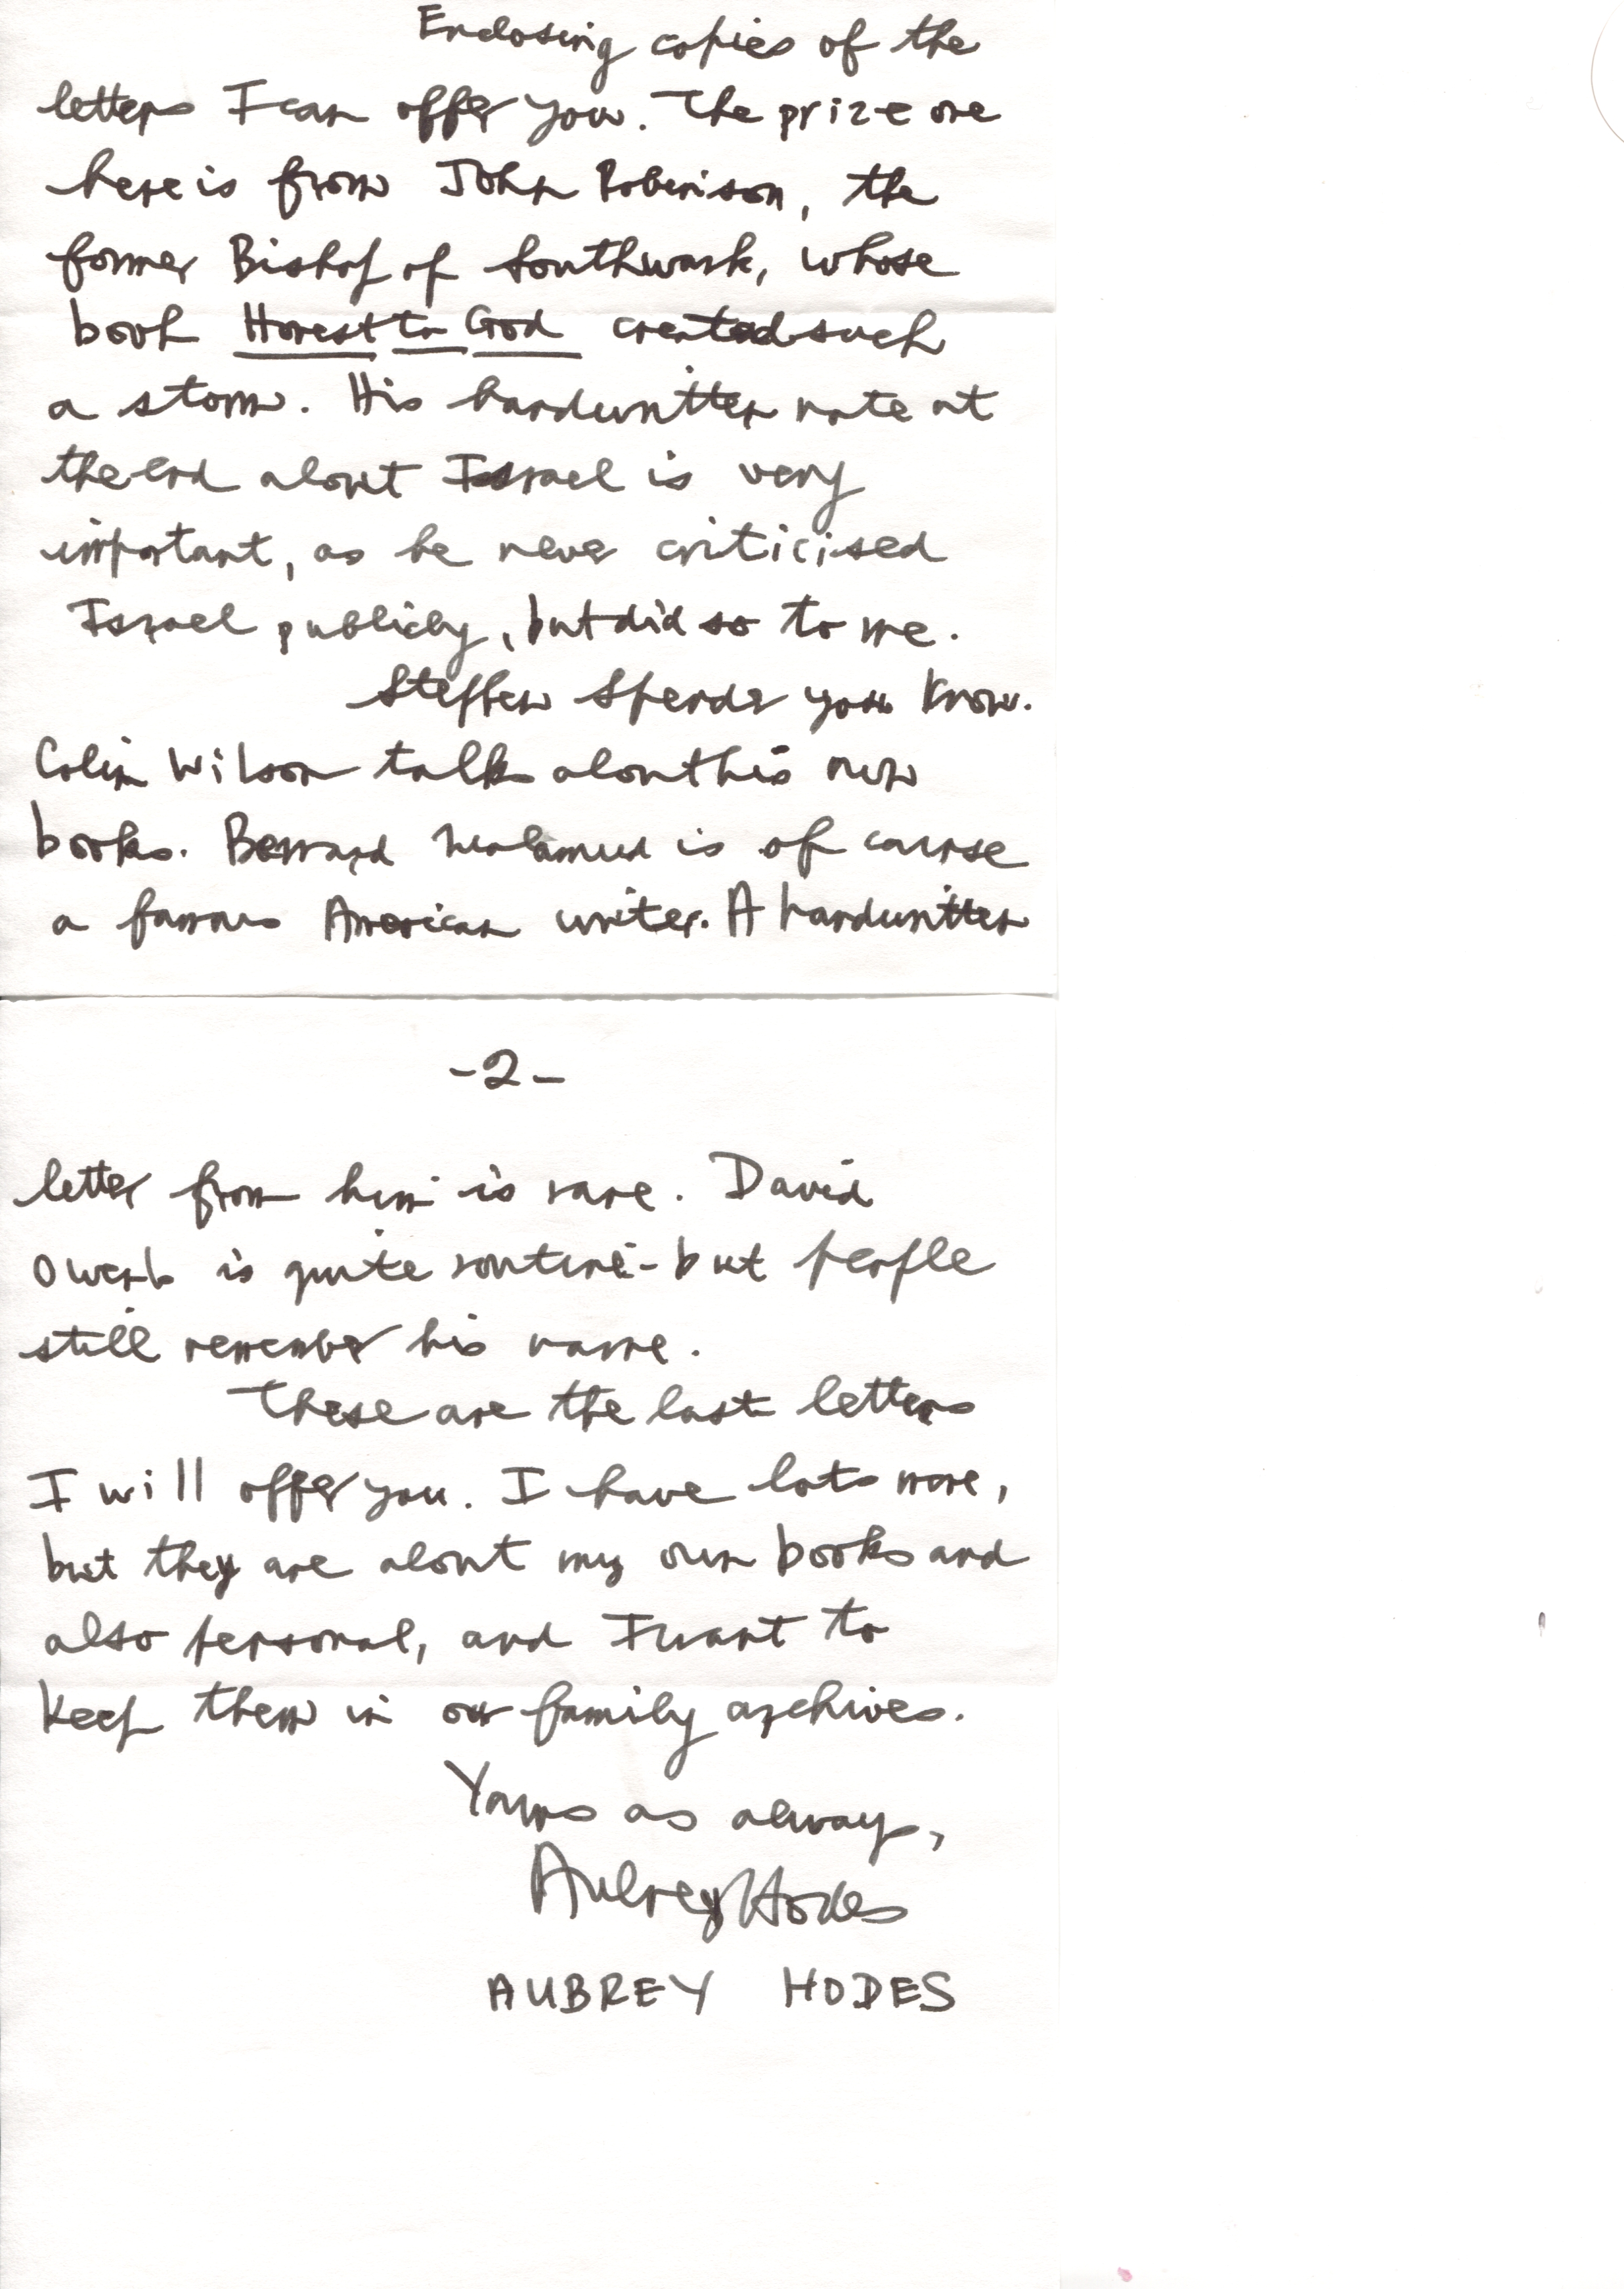 Enclosing copies of the
letters I can offer you. The prize one
here is from John Robinson, the
former Bishop of Southwark, whose
book Honest to God created such
a storm. His handwritten note at
the end about Israel is very
important, as he never criticised
Israel publicly, but did so to me.
Stephen Spender you know.
Colin Wilson talks about his own
books. Bernard Malamud is of course
a famous American writer. A handwritten
-2-
letter from him is rare. David
Owen's is quite routine - but people
still remember his name.
These are the last letters
I will offer you. I have lots more,
but they are about my own books and
also personal, and I want to
keep them in our family archives.
Yours as always,
Aubrey Hodes
AUBREY HODES